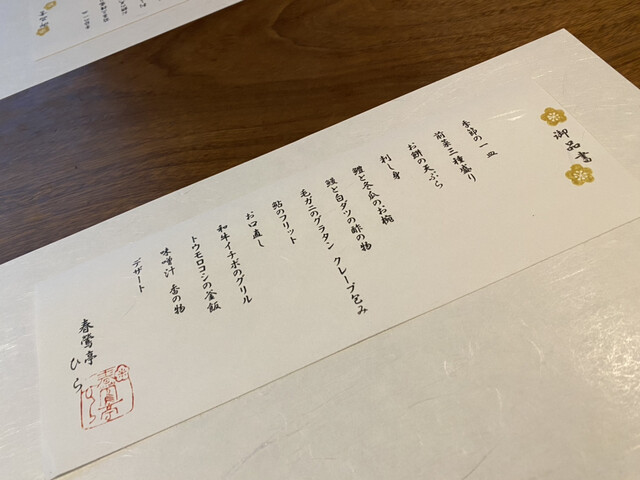 御品書
季節の一皿
前菜三種盛り
お餅の天ぷら
刺し身
鱧と冬瓜のお椀
鰻と白ダツの酢の物
毛ガニのグラタン クレープ包み
鮎のフリット
お口直し
和牛イチボのグリル
トウモロコシの釜飯
味噌汁 香の物
デザート
春鶯亭 ひら